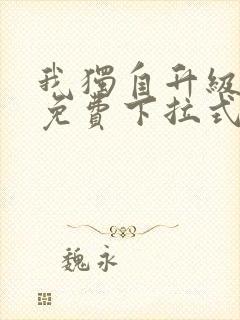 我獨自升級
免費下拉式
魏永